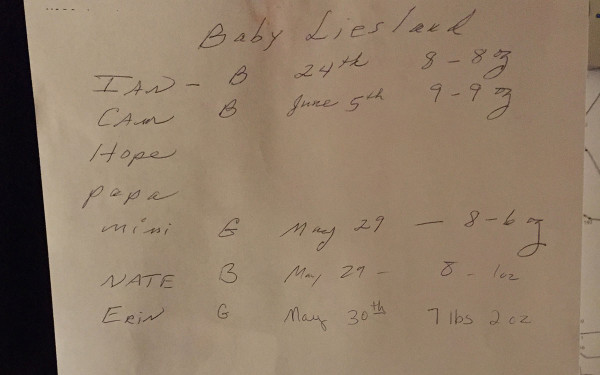 Baby Liesland
IAN - B 24th 8 - 8 oz
CAM B June 5th 9 - 9 oz
Hope
papa
mimi G May 29 — 8-6 oz
NATE B May 29 - 8 - 1oz
ERIN G May 30th 7 lbs 2 oz